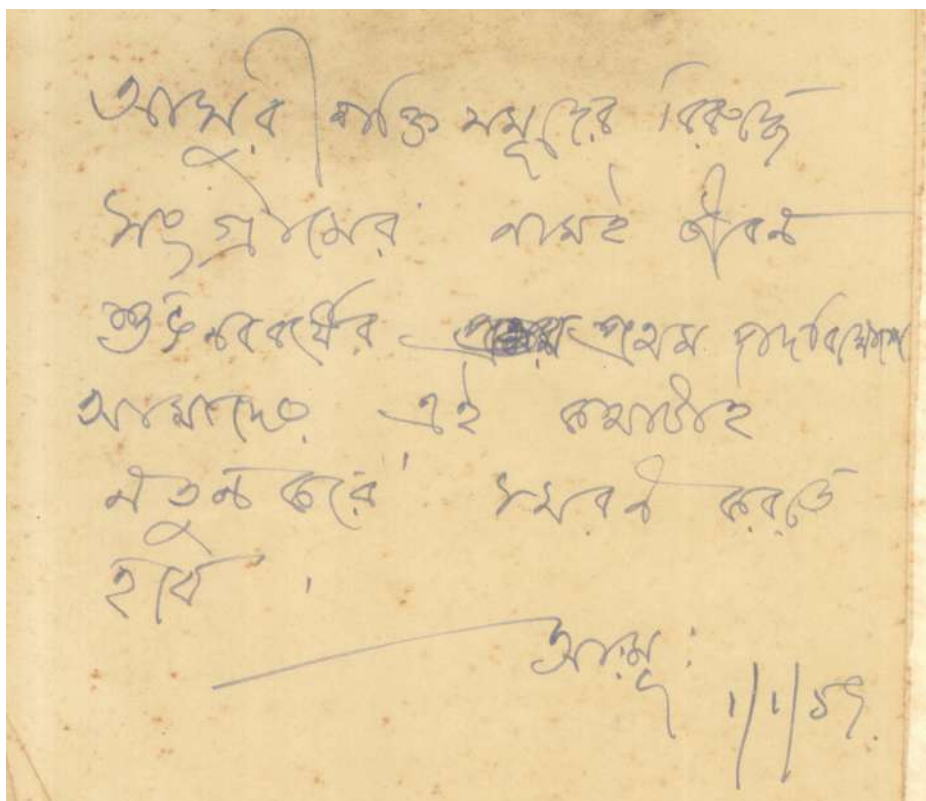 আসুরী শক্তি সমূহের বিরুদ্ধে
সংগ্রামের নামই জীবন
শুভ নববর্ষের প্রথম পাদবিক্ষেপে
আমাদের এই কথাটাই
নতুন করে স্মরণ করতে
হবে।
১/১/১৮